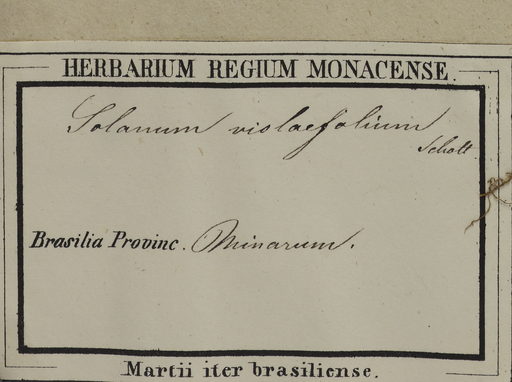 HERBARIUM REGIUM MONACENSE.
Solanum violaefolium
Schott
Brasilia Provinc. Minarum.
Martii iter brasiliense.